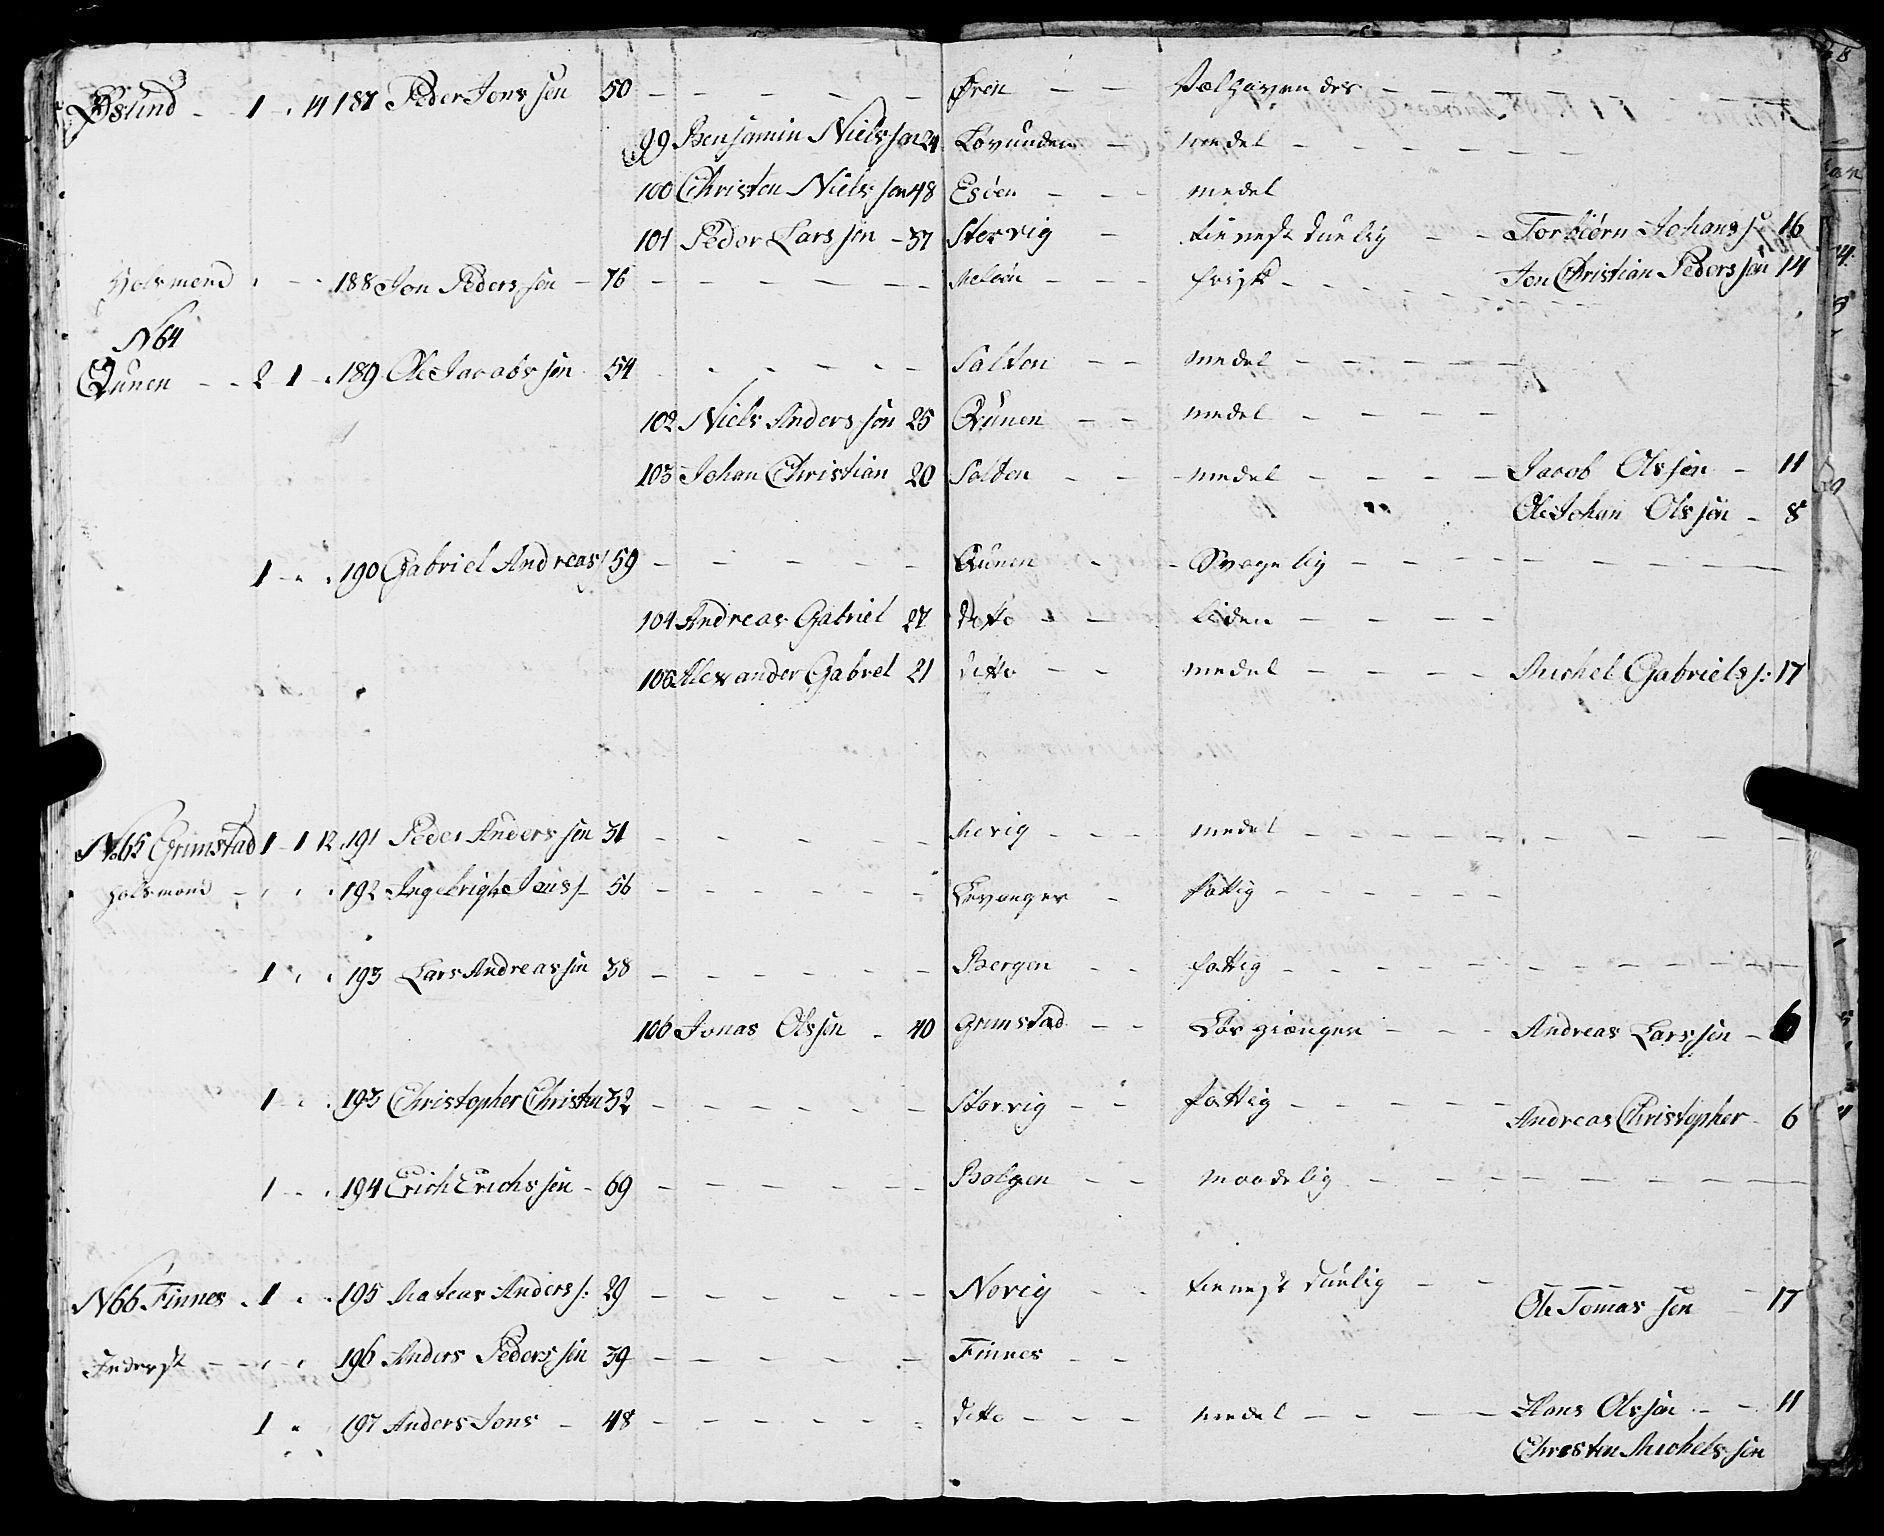 Øslind - - 1 - . 14 187 Peder Jons søn 50 - - - - - - Øren - - Velhavendes - -
99 Benjamin Niels søn 24 Lovunden - medel - - - - - -
100 Christen Niels søn 48 Esøen - - - medel
101 Peder Lars søn - 37 Storvig - tienest duelig - - Torbiørn Johans s: 16
Holsmend . - - . 188 Jon Peders søn - 76 - - - - - - Meløen - - - frisk - - - - - Jon Christian Peders søn 14
N 64
Qunen - - 2 1 - . 189 Ole Jacobs søn 54 - - - - - Salten - - medel - - - - -
102 Niels Anders søn 25 Qunen - - medel - - - -
103 Johan Christian 20 Salten - - - medel - - - - Jacob Ols søn - 11
Ole Johan Ols søn - 8
1 - . . 190 Gabriel Andreas s 59 - - - - - Qunen - - Svagelig - - - - - - - -
104 Andreas Gabriel 27 ditto - - liden - - - -
105 Alexander Gabriel 21 ditto - - medel - - - - Michel Gabriels s: 17
No 65 Grimstad 1 - 1 12 191 Peder Anders søn 31 - - - - - Mevig - - - medel - - - - - - - - -
Holsmand - . . . 192 Ingebrigt Jens s - 56 - - - - - - Levanger - fattig - - - - -
1 . . 193 Lars Andreas søn 38 - - - - - - Bergen - - fattig - - - - - - - - - -
106 Jonas Ols søn - 40 Grimstad - - Løs giænger - - - Andreas Lars søn - 6
1 . . 193 Christopher Christen 32 - - - - - - Storvig - - fattig - - - - - Andreas Christopher - 6
1 - . . 194 Erich Erichs søn - 69 - - - - - - Bolgen - - maadelig - - - - - - - - -
N 66 Finnes . 1 . . 195 Mateas Anders s: 29 - - - - - - Norvig - - tienest duelig - - Ole Tomas søn - 17
Inderst - - . - . 196 Anders Peders søn 39 - - - - - - Finnes - -
1 . 197 Anders Jons - 48 - - - - - - ditto - - - medel - - - - Hans Ols søn - - 11
Christen Michels søn